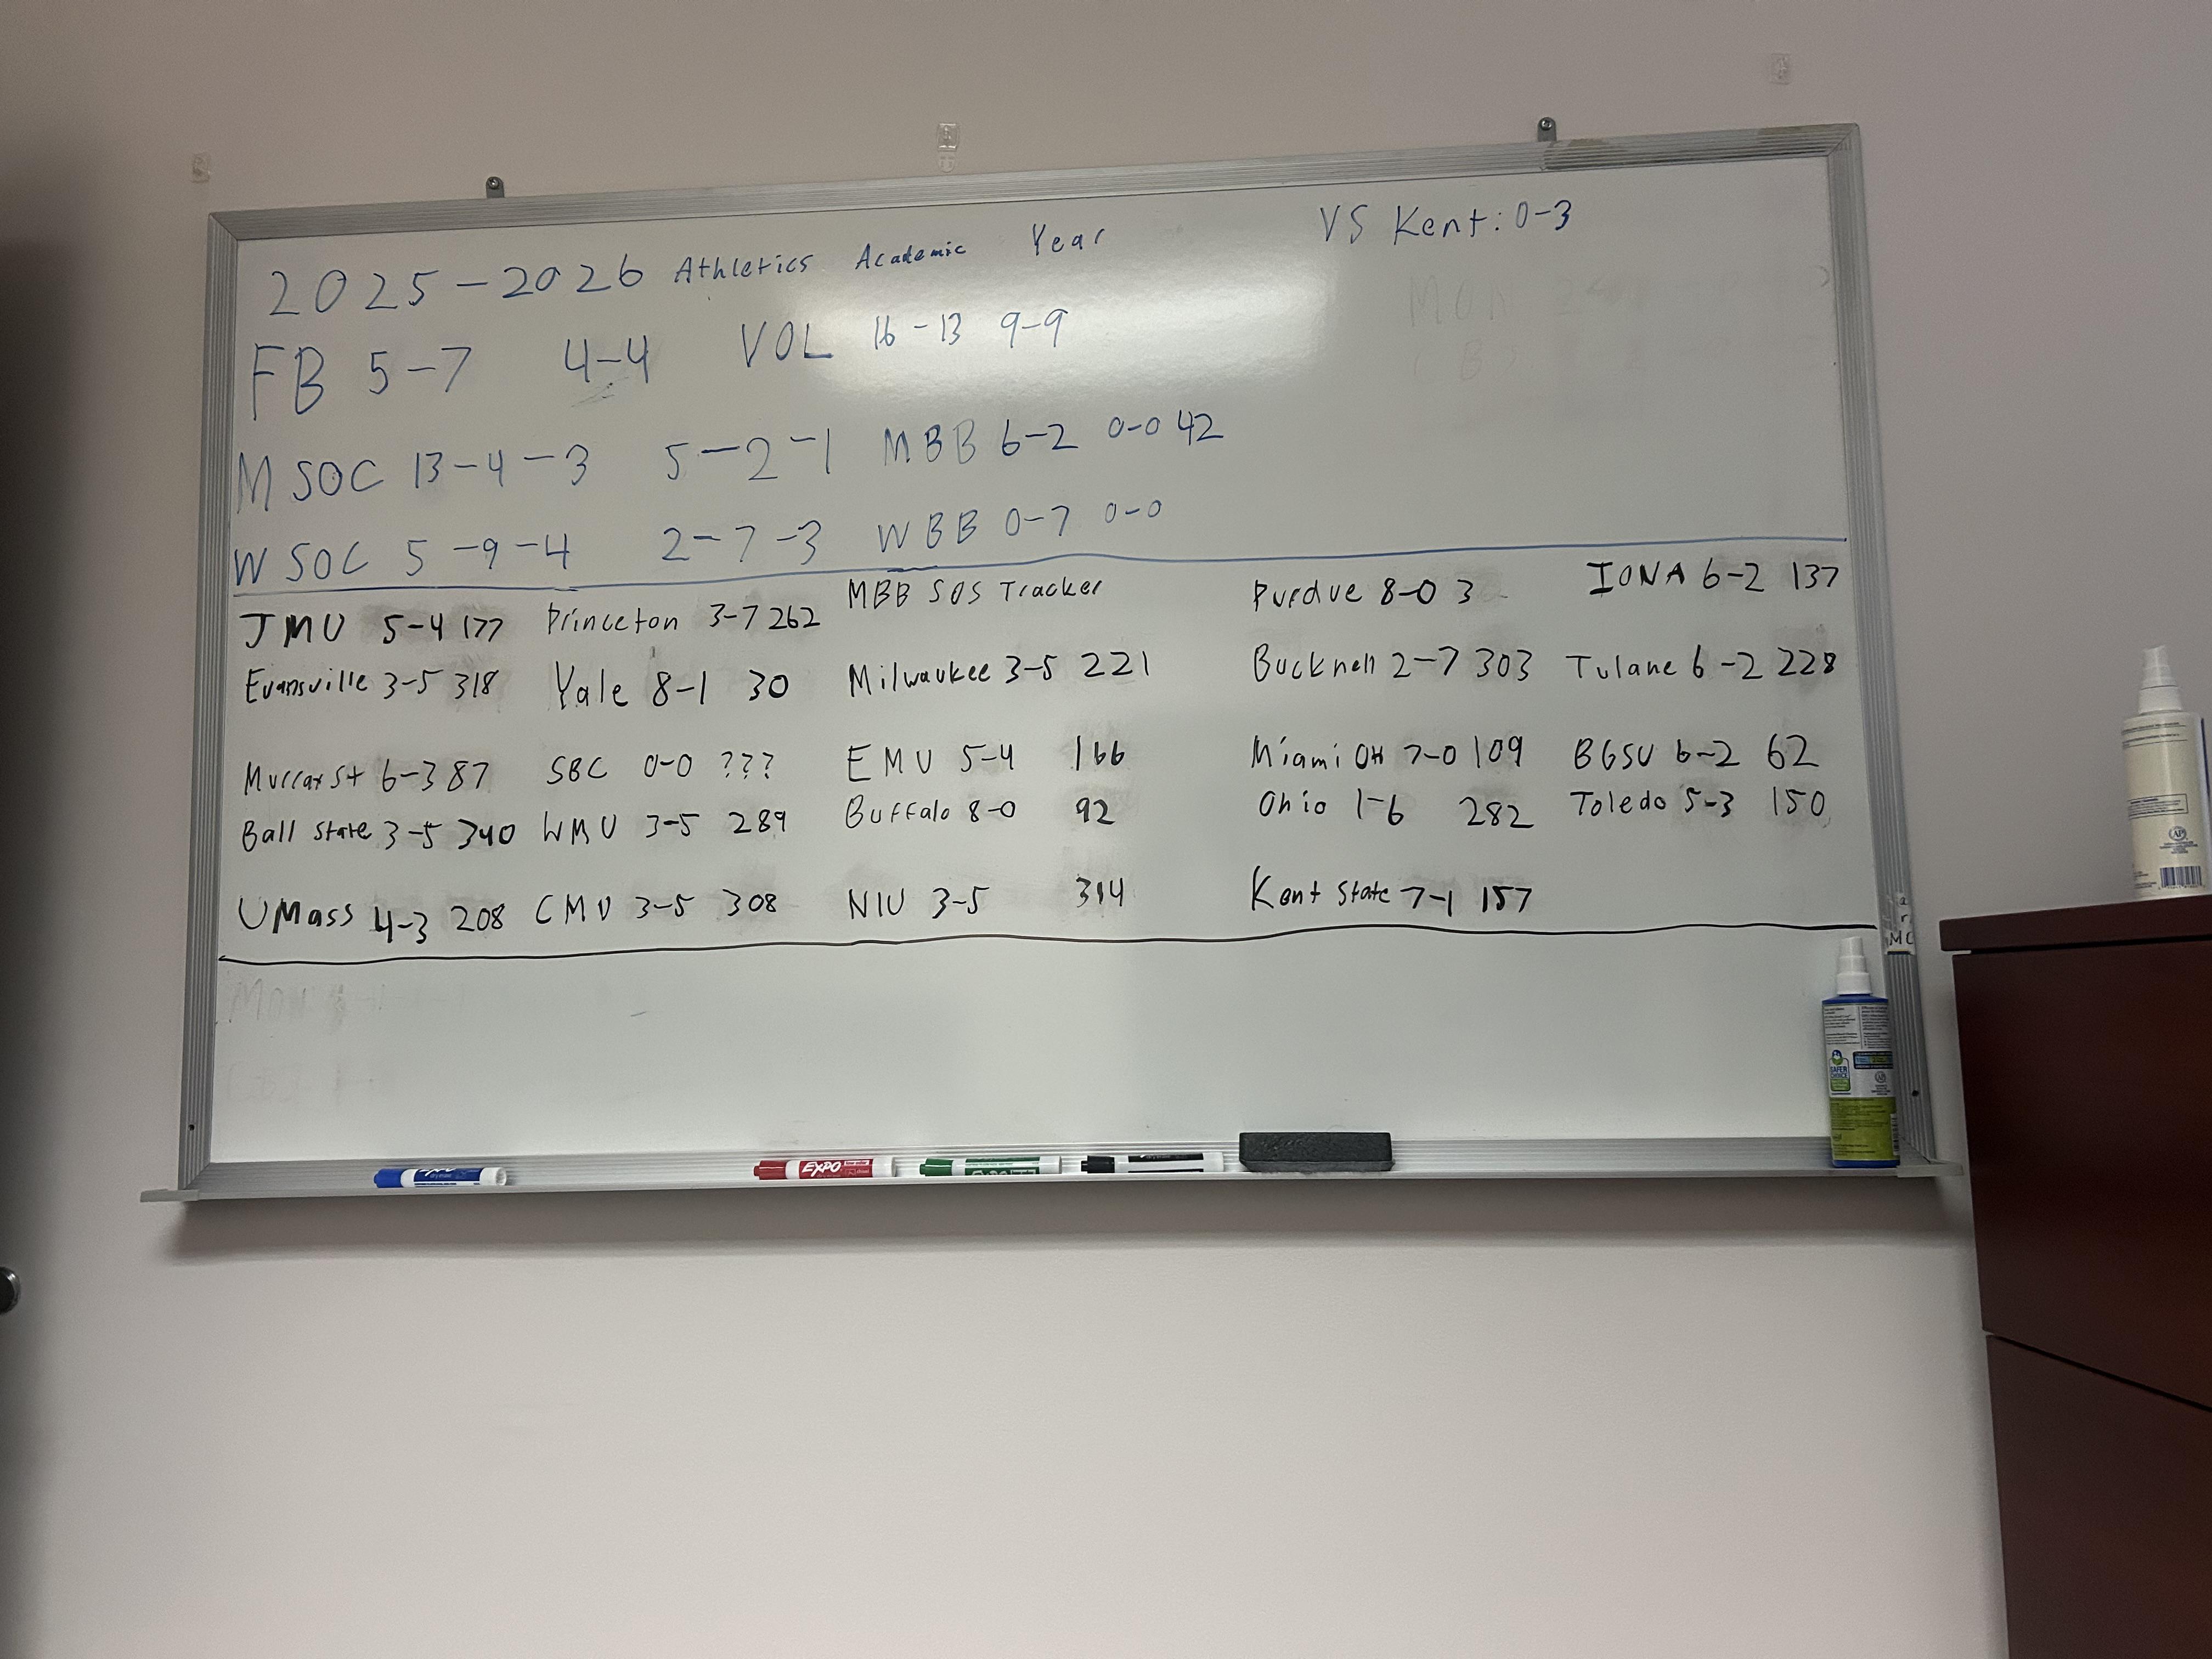 2025-2026 Athletics Academic Year VS Kent: 0-3
FB 5-7 4-4 VOL 16-13 9-9
M SOC 13-4-3 5-2-1 MBB 6-2 0-0 42
W SOC 5-9-4 2-7-3 WBB 0-7 0-0
MBB SOS Tracker
JMU 5-4 177 Princeton 3-7 262 Purdue 8-0 3 IONA 6-2 137
Evansville 3-5 318 Yale 8-1 30 Milwaukee 3-5 221 Bucknell 2-7 303 Tulane 6-2 228
Murray St 6-3 87 SBC 0-0 ??? EMU 5-4 166 Miami OH 7-0 109 BGSU 6-2 62
Ball State 3-5 340 WMU 3-5 289 Buffalo 8-0 92 Ohio 1-6 282 Toledo 5-3 150
UMass 4-3 208 CMU 3-5 308 NIU 3-5 314 Kent State 7-1 157
EXPO
EXPO
SAFER CHOICE